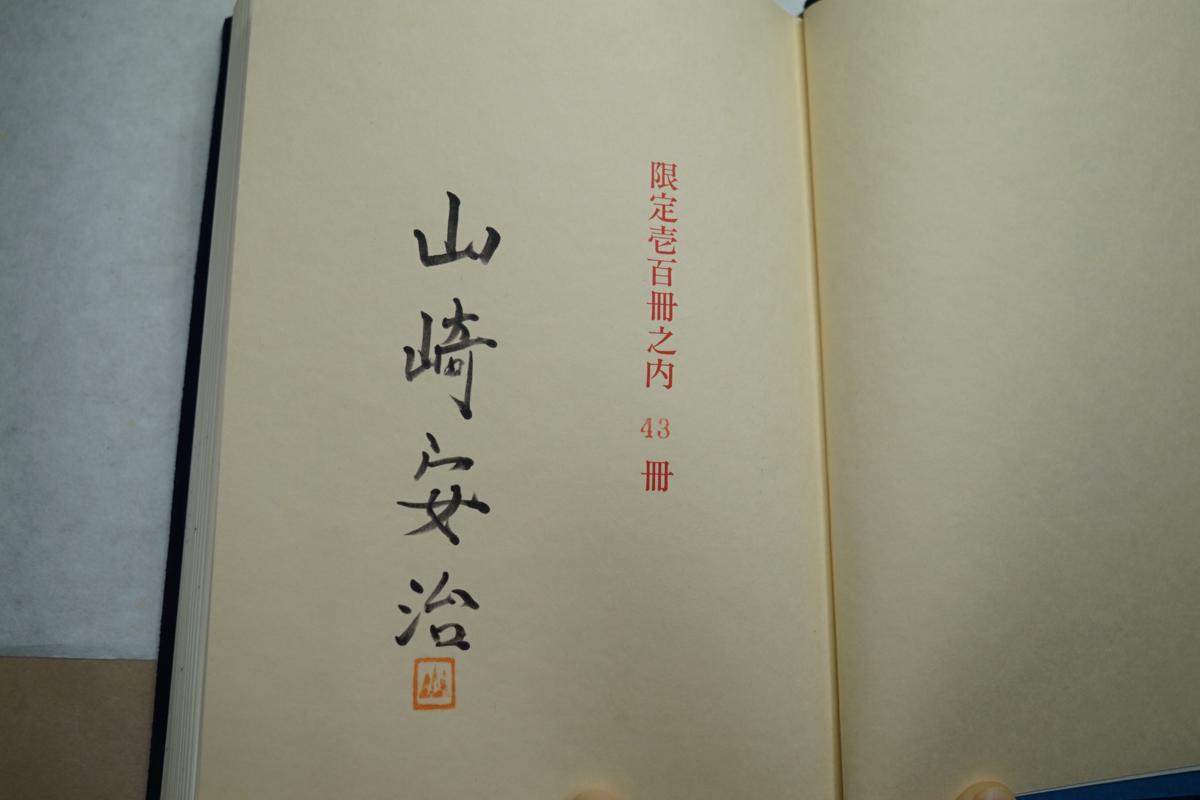 限定壱百冊之内 43 冊
山崎安治
山